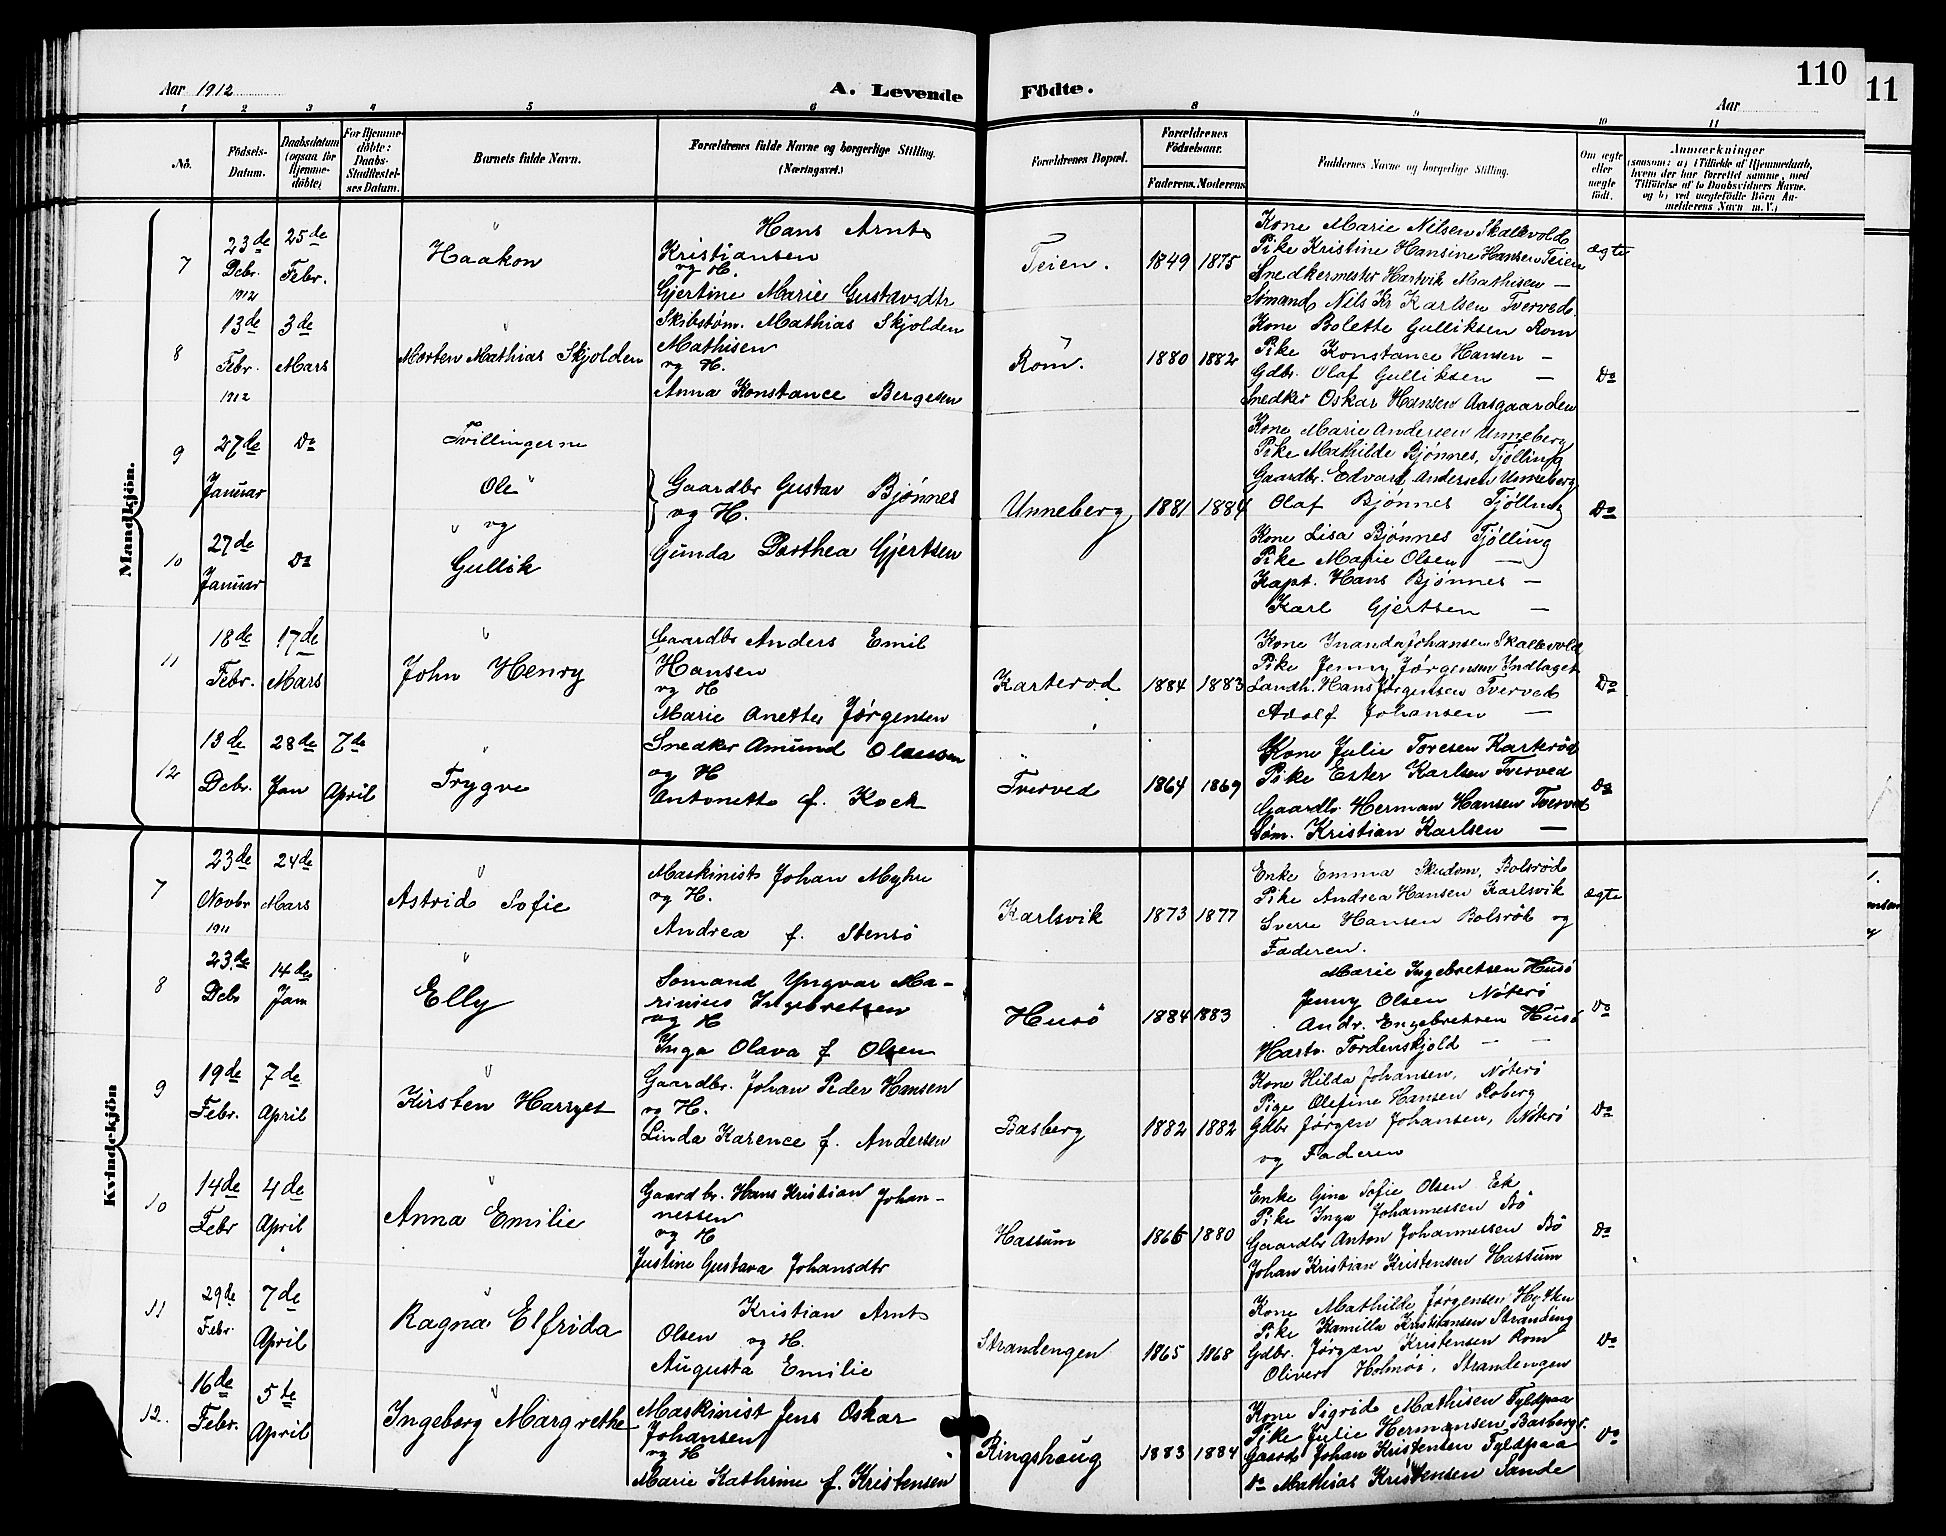 110
11
Aar 1912
A. Levende Födte.
Aar
1 2 3 4 5 6 8 9 10 11
No.
Födsels-Datum.
Daabsdatum (ogsaa for Hjemme-döbte)
For Hjemme-döbte: Daabs-Stadfestel-ses Datum.
Barnets fulde Navn.
Forældrenes fulde Navne og borgerlige Stilling. (Næringsvei.)
Forældrenes Bopæl.
Forældrenes Födselsaar.
Faderens. Moderens.
Faddernes Navne og borgerlige Stilling.
Om ægte eller uægte födt.
Anmærkninger
(saasom: a) i Tilfælde af Hjemmedaab,
hvem der har forrettet samme, med
Tilföielse af to Daabsvidners Navne.
og b) ved uægtefödte Börn An-
melderens Navn m. V.)
Mandkjön.
7
23de Debr. 1912
25de Febr.
Haakon
Hans Arnt
Kristiansen
og H.
Gjertine Marie Gustavsdtr
Teien.
1849 1875
Kone Marie Nilsen Skallevold
Pike Kristine Hansine Hansen Teien
Snedkermester Hartvik Mathisen —
Sömand Nils Kr Karlsen Tverved
ægte
8
13de Febr. 1912
3de Mars
Morten Mathias Skjolden
Skibstöm. Mathias Skjolden
Mathisen
og H.
Anna Konstance Bergesen
Rom.
1880 1882
Kone Bolette Gulliksen Rom
Pike Konstance Hansen —
Gdbr. Olaf Gulliksen —
Snedker Oskar Hansen Aasgaarden
Do
9
27de Januar
Do
Tvillingerne
Ole
og
10
27de Januar
Do
Gullik
Gaardbr Gustav Bjönnes
og H.
Gunda Dorthea Gjertsen
Unneberg
1881 1884
Kone Marie Andersen Unneberg
Pike Mathilde Bjönnes, Tjölling
Gaardbr. Edvard Andersen Unneberg
Olaf Bjönnes Tjölling
Kone Lisa Bjönnes Tjölling
Pike Marie Olsen —
Kapt. Hans Bjönnes —
Karl Gjertsen —
Do
11
18de Febr.
17de Mars
John Henry
Gaardbr Anders Emil
Hansen
og H
Marie Anette Jörgensen
Karterod
1884 1883
Kone Inanda Johansen Skallevold
Pike Jenny Jörgensen Indlaget
Landh. Hans Jörgensen Tverved
Adolf Johansen —
Do
12
13de Debr.
28de Jan
7de April
Trygve
Snedker Amund Olaussen
og H
Antonette f. Kock
Tverved
1864 1869
Kone Julie Toresen Karteröd
Pike Ester Karlsen Tverved
Gaardbr. Herman Hansen Tverved
Söm. Kristian Karlsen —
Do
Kvindekjön
7
23de Novbr 1911
24de Mars
Astrid Sofie
Maskinist Johan Myhre
og H.
Andrea f. Stensö
Karlsvik
1873 1877
Enke Emma Skudem, Bolsröd
Pike Andrea Hansen Karlsvik
Sverre Hansen Bolsröd og
Faderen.
ægte
8
23.de Debr
14de Jan
Elly
Somand Yngvar Ma-
rinius Ingebretsen
og H
Inga Olava f Olsen
Husö
1884 1883
Marie Ingebretsen Husö
Jenny Olsen Nöterö
Andr. Engebretsen Husö
Hartv. Tordenskjold — —
Do
9
19de Febr.
7de April
Kirsten Harryet
Gaardbr. Johan Peder Hansen
og H.
Linda Karence f. Andersen
Basberg
1882 1882
Kone Hilda Johansen, Nöterö
Pige Olefine Hansen Roberg
Gdbr Jörgen Johansen, Nöterö
og Faderen
Do
10
14de Febr
4de April
Anna Emilie
Gaardbr. Hans Kristian Johan-
nessen
og H
Justine Gustava Johansdtr
Hassum
1866 1880
Enke Gina Sofie Olsen Ek
Pike Inga Johannessen Bö
Gaardbr Anton Johannessen Bö
Johan Kristian Kristensen Hassum
Do
11
29de Febr.
7de April
Ragna Elfrida
Kristian Arnt
Olsen og H.
Augusta Emilie
Strandengen
1865 1868
Kone Mathilde Jörgensen
Pike Kamilla Kristiansen Strandeng
Gdbr. Jörgen Kristensen Rom
Oliver Holmös, Strandengen
Do
12.
16de Febr.
5te April
Ingeborg Margrethe
Maskinist Jens Oskar
Johansen
og H
Marie Kathrine f. Kristensen
Ringshaug
1883 1884
Kone Sigrid Mathisen Fyldpaa
Pike Julie Hermansen Basberg
Gaardb Johan Kristensen Fyldpaa
Do Mathias Kristensen Sande
Do